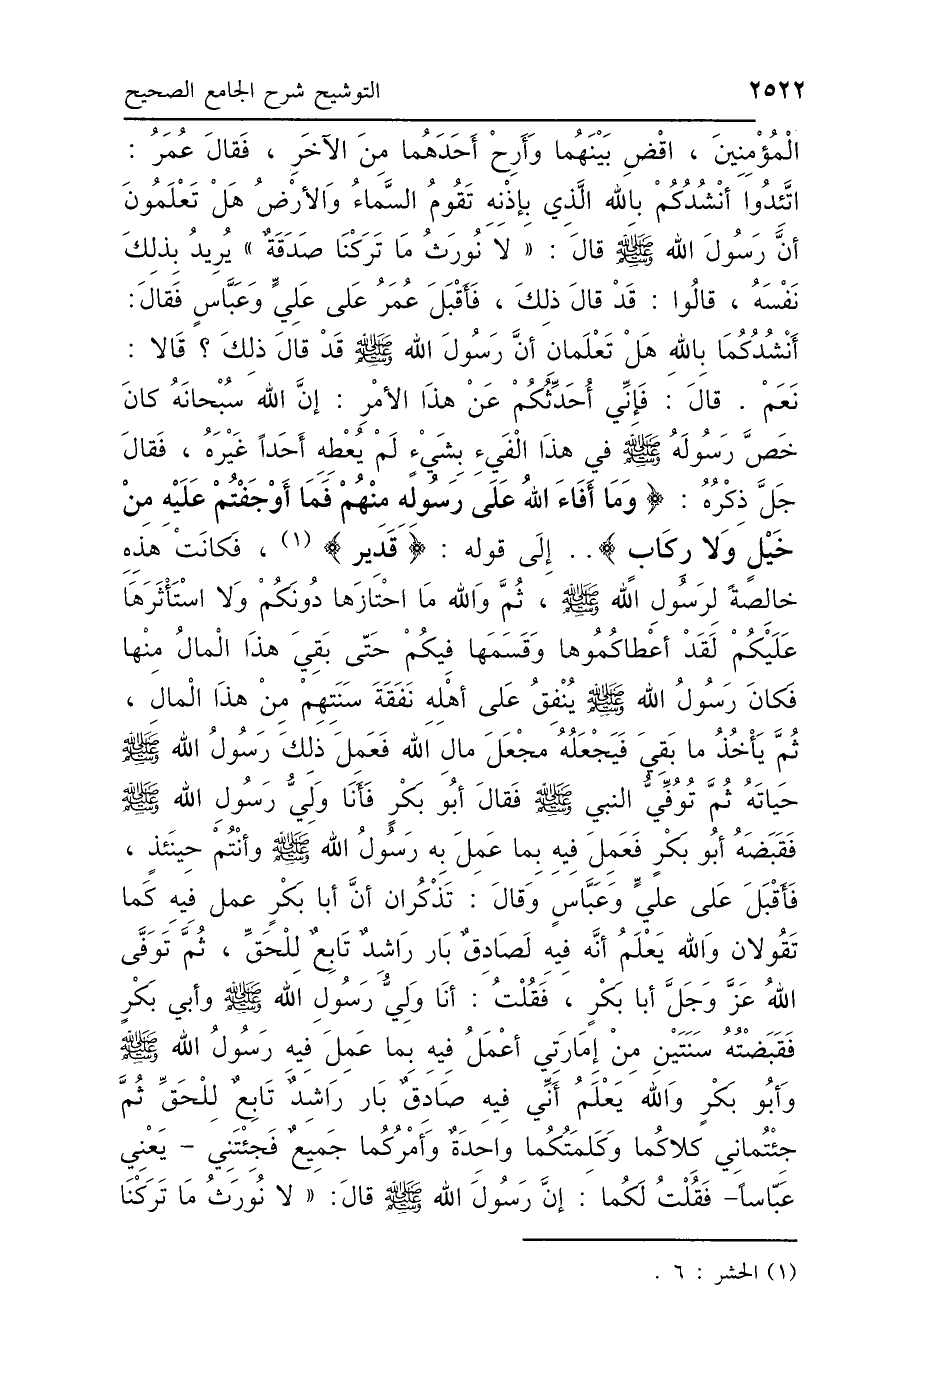 ٢٥٢٢ التوشيح شرح الجامع الصحيح
الْمُؤْمِنِينَ ، اقْضِ بَيْنَهُما وَأَرِحْ أَحَدَهُما مِنَ الآخَرِ ، فَقالَ عُمَرُ :
اتَّئِدُوا أنْشُدُكُمْ بِالله الَّذي بِإذْنِهِ تَقُومُ السَّماءُ وَالأرْضُ هَلْ تَعْلَمُونَ
أنَّ رَسُولَ الله ﷺ قالَ : « لا نُورَثُ مَا تَرَكْنَا صَدَقَةٌ » يُرِيدُ بِذلكَ
نَفْسَهُ ، قالُوا : قَدْ قالَ ذلِكَ ، فَأَقْبَلَ عُمَرُ عَلى عَلِيٍّ وَعَبَّاسٍ فَقالَ:
أَنْشُدُكُمَا بِالله هَلْ تَعْلَمانِ أنَّ رَسُولَ الله ﷺ قَدْ قالَ ذلِكَ ؟ قَالا :
نَعَمْ . قالَ : فَإنِّي أُحَدِّثُكُمْ عَنْ هذَا الأمْرِ : إنَّ الله سُبْحانَهُ كانَ
خَصَّ رَسُولَهُ ﷺ في هذَا الْفَيءِ بِشَيْءٍ لَمْ يُعْطِهِ أَحَداً غَيْرَهُ ، فَقالَ
جَلَّ ذِكْرُهُ : ﴿ وَمَا أَفَاءَ اللهُ عَلَى رَسُولِهِ مِنْهُمْ فَمَا أَوْجَفْتُمْ عَلَيْهِ مِنْ
خَيْلٍ وَلا رِكَابٍ ﴾.. إلَى قوله : ﴿ قَدِير ﴾ (١) ، فَكانَتْ هذِهِ
خالِصةً لِرَسُولِ الله ﷺ ، ثُمَّ وَالله مَا احْتازَها دُونَكُمْ وَلا اسْتَأْثَرَهَا
عَلَيْكُمْ لَقَدْ أعْطاكُمُوها وَقَسَمَها فِيكُمْ حَتّى بَقِيَ هذَا الْمالُ مِنْها
فَكانَ رَسُولُ الله ﷺ يُنْفِقُ عَلى أهْلِهِ نَفَقَةَ سَنَتِهِمْ مِنْ هذَا الْمالِ ،
ثُمَّ يَأْخُذُ ما بَقِيَ فَيَجْعَلُهُ مجْعَلَ مالِ الله فَعَمِلَ ذلكَ رَسُولُ الله ﷺ
حَياتَهُ ثُمَّ تُوُفِّيَ النبي ﷺ فَقالَ أبُو بَكْرٍ فَأَنَا وَلِيُّ رَسُولِ الله ﷺ
فَقَبَضَهُ أبُو بَكْرٍ فَعَمِلَ فيهِ بِما عَمِلَ بِه رَسُولُ الله ﷺ وأنْتُمْ حِينَئِذٍ ،
فَأَقْبَلَ عَلى عَلِيٍّ وَعَبَّاسٍ وقَالَ : تَذْكُرانِ أنَّ أبا بَكْرٍ عمِل فِيهِ كَما
تَقُولانِ وَالله يَعْلَمُ أنَّه فِيهِ لَصَادِقٌ بَار رَاشِدٌ تَابِعٌ لِلْحَقِّ ، ثُمَّ تَوَفَّى
اللهُ عَزَّ وَجَلَّ أبا بَكْرٍ ، فَقُلْتُ : أنَا وَلِيُّ رَسُولِ الله ﷺ وأبي بَكْرٍ
فَقَبَضْتُهُ سَنَتَيْنِ مِنْ إمَارَتِي أعْمَلُ فِيهِ بِما عَمِلَ فِيهِ رَسُولُ الله ﷺ
وَأبُو بَكْرٍ وَالله يَعْلَمُ أنِّي فِيهِ صَادِقٌ بَار رَاشِدٌ تَابِعٌ لِلْحَقِّ ثُمَّ
جِئْتُماني كلاكُما وَكَلِمَتُكُما واحِدَةٌ وَأمْرُكُما جَمِيعٌ فَجِئْتَنِي - يَعْنِي
عَبّاساً- فَقُلْتُ لَكُما : إنَّ رَسُولَ الله ﷺ قالَ: « لا نُورَثُ مَا تَرَكْنَا
(١) الحشر : ٦ .